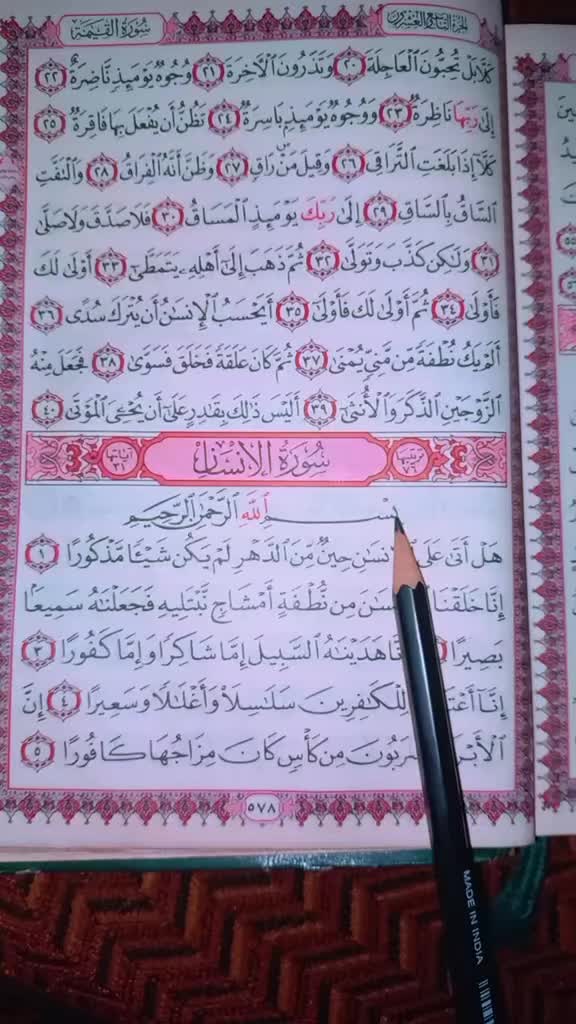 الجزء التاسع والعشرون
سُورَةُ القِيَامَةِ
كَلَّا بَلْ تُحِبُّونَ الْعَاجِلَةَ ٢٠ وَتَذَرُونَ الْآخِرَةَ ٢١ وُجُوهٌ يَوْمَئِذٍ نَّاضِرَةٌ ٢٢
إِلَىٰ رَبِّهَا نَاظِرَةٌ ٢٣ وَوُجُوهٌ يَوْمَئِذٍ بَاسِرَةٌ ٢٤ تَظُنُّ أَن يُفْعَلَ بِهَا فَاقِرَةٌ ٢٥
كَلَّا إِذَا بَلَغَتِ التَّرَاقِيَ ٢٦ وَقِيلَ مَنْ ۜ رَاقٍ ٢٧ وَظَنَّ أَنَّهُ الْفِرَاقُ ٢٨ وَالْتَفَّتِ
السَّاقُ بِالسَّاقِ ٢٩ إِلَىٰ رَبِّكَ يَوْمَئِذٍ الْمَسَاقُ ٣٠ فَلَا صَدَّقَ وَلَا صَلَّىٰ
٣١ وَلَٰكِن كَذَّبَ وَتَوَلَّىٰ ٣٢ ثُمَّ ذَهَبَ إِلَىٰ أَهْلِهِ يَتَمَطَّىٰ ٣٣ أَوْلَىٰ لَكَ
فَأَوْلَىٰ ٣٤ ثُمَّ أَوْلَىٰ لَكَ فَأَوْلَىٰ ٣٥ أَيَحْسَبُ الْإِنسَٰنُ أَن يُتْرَكَ سُدًى ٣٦
أَلَمْ يَكُ نُطْفَةً مِّن مَّنِيٍّ يُمْنَىٰ ٣٧ ثُمَّ كَانَ عَلَقَةً فَخَلَقَ فَسَوَّىٰ ٣٨ فَجَعَلَ مِنْهُ
الزَّوْجَيْنِ الذَّكَرَ وَالْأُنثَىٰ ٣٩ أَلَيْسَ ذَٰلِكَ بِقَٰدِرٍ عَلَىٰ أَن يُحْـِۧيَ الْمَوْتَىٰ ٤٠
ترتيبها ٧٦
سُورَةُ الإِنسَان
آياتها ٣١
بِسْمِ اللَّهِ الرَّحْمَٰنِ الرَّحِيمِ
هَلْ أَتَىٰ عَلَى الْإِنسَٰنِ حِينٌ مِّنَ الدَّهْرِ لَمْ يَكُن شَيْـًٔا مَّذْكُورًا ١
إِنَّا خَلَقْنَا سَٰنَ مِن نُّطْفَةٍ أَمْشَاجٍ نَّبْتَلِيهِ فَجَعَلْنَٰهُ سَمِيعًا
بَصِيرًا هَدَيْنَٰهُ السَّبِيلَ إِمَّا شَاكِرًا وَإِمَّا كَفُورًا ٣
إِنَّا لِلْكَٰفِرِينَ سَلَٰسِلَا۟ وَأَغْلَٰلًا وَسَعِيرًا ٤ إِنَّ
مِن كَأْسٍ كَانَ مِزَاجُهَا كَافُورًا ٥
٥٧٨
MADE IN INDIA